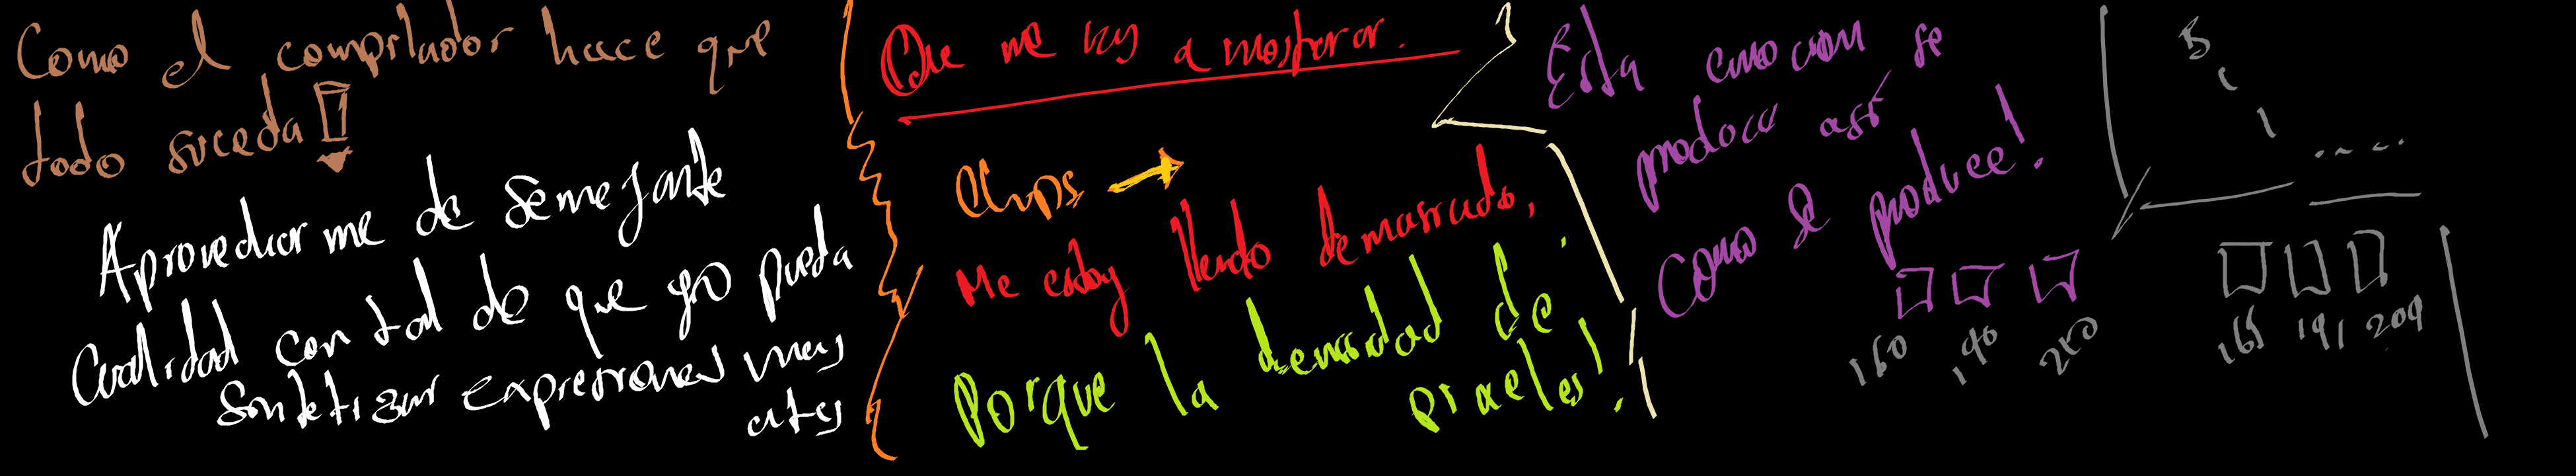 Como el compilador hace que
todo suceda!
Aprovechar me de semejante
Cualidad con tal de que yo pueda
sintetizar expresiones muy
Que me voy a mostrar.
Chips →
Me estoy llendo demasiado,
Porque la densidad de
pixeles!
Esta emocion se
produce así
Como se produce!
160 190 210
5
1
.....
165 191 209